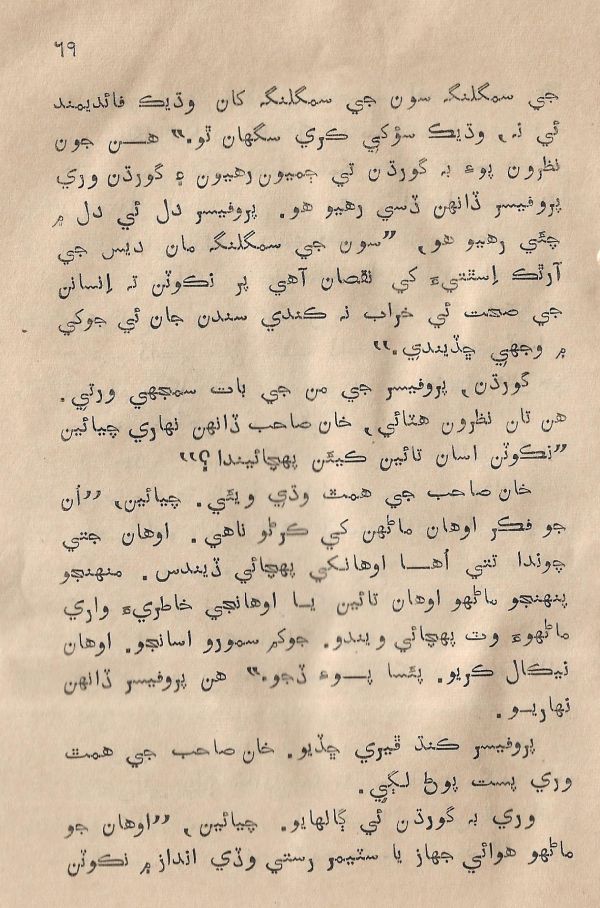 ६१
جي سمگلنگہ سون جي سمگلنگہ کان وڌيڪ فائديمند
ئي نہ، وڌيڪ سؤکي ڪري سگهان ٿو.” هــن جون
نظرون پوءِ بہ گورڌن تي ڄميون رهيون ۽ گورڌن وري
پرفيسر ڏانهن ڏسي رهيو هو. پروفيسر دل ئي دل ۾
چئي رهيو هو، ”سون جي سمگلنگہ مان ديس جي
آرٿڪ اِسٿتيءَ کي نقصان آهي پر نڪوٽن تہ اِنسانن
جي صحت ئي خراب نہ ڪندي سندن جان ئي جوکي
۾ وجهي ڇڏيندي.“
گورڌن، پروفيسر جي من جي بات سمجهي ورتي.
هن تان نظرون هٽائي، خان صاحب ڏانهن نهاري چيائين
”نڪوٽن اسان تائين ڪيئن پهچائيندا؟“
خان صاحب جي همٿ وڌي ويئي. چيائين، ”اُن
جو فڪر اوهان ماڻهن کي ڪرڻو ناهي. اوهان جتي
چوندا تتي اُهــا اوهانکي پهچائي ڏيندس. منهنجو
پنهنجو ماڻهو اوهان تائين يــا اوهانجي خاطريءَ واري
ماڻهوءَ وٽ پهچائي ويندو. جوکم سمورو اسانجو. اوهان
نيڪال ڪريو. پئسا پــوءِ ڏجو.” هن پروفيسر ڏانهن
نهاريــو.
پروفيسر ڪنڌ ڦيري ڇڏيو. خان صاحب جي همٿ
وري پست پوڻ لڳي.
وري بہ گورڌن ئي ڳالهايو. چيائين، ”اوهان جو
ماڻهو هوائي جهاز يا سٽيمر رستي وڏي انداز ۾ نڪوٽن